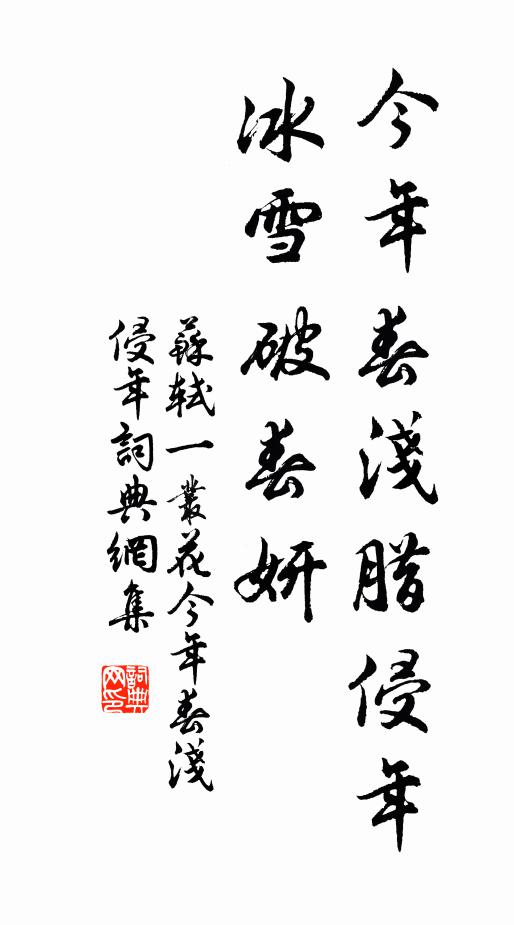 今年春淺腊侵年
冰雪破春妍
蘇軾一叢花今年春淺
侵年詞典網集
詞典
网印